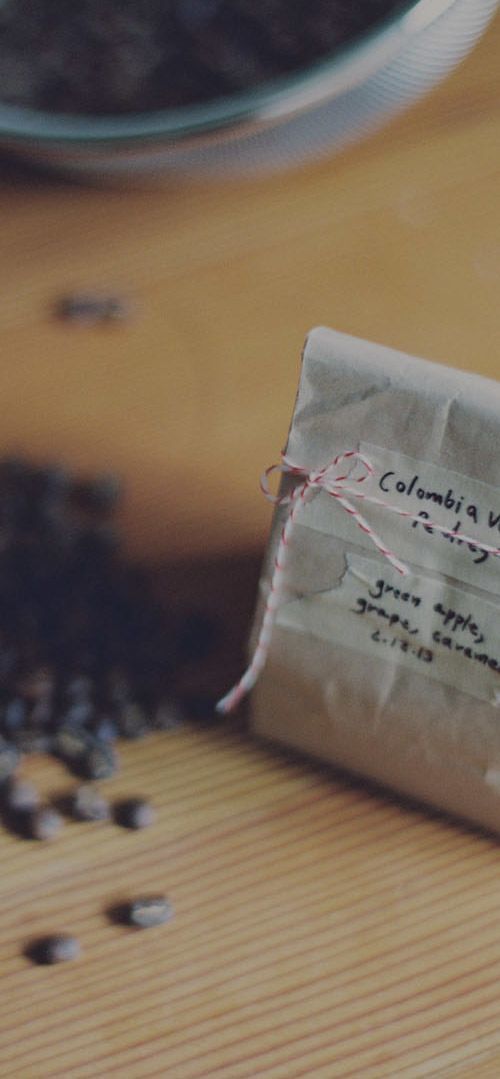 Colombia
green apple,
grape, carame
2.12.13